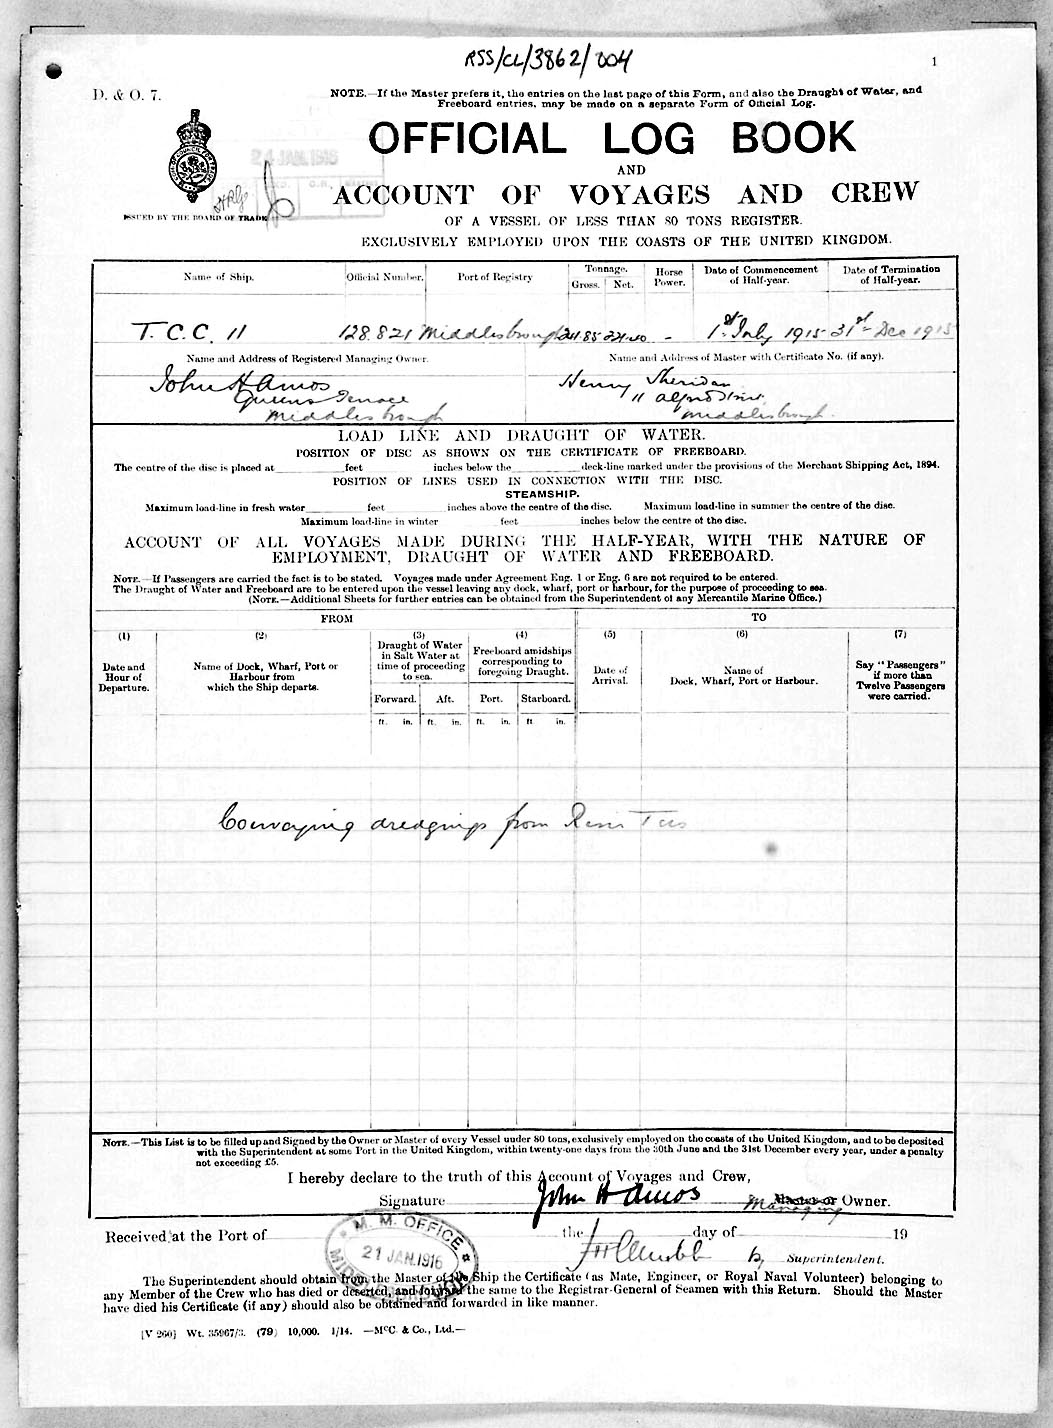 RSS/CL/3862/004
1
D. & O. 7.
NOTE.—If the Master prefers it, the entries on the last page of this Form, and also the Draught of Water, and
Freeboard entries, may be made on a separate Form of Official Log.
24 JAN. 1916
OFFICIAL LOG BOOK
AND
ACCOUNT OF VOYAGES AND CREW
ISSUED BY THE BOARD OF TRADE
OF A VESSEL OF LESS THAN 80 TONS REGISTER.
EXCLUSIVELY EMPLOYED UPON THE COASTS OF THE UNITED KINGDOM.
Name of Ship. Official Number. Port of Registry Tonnage. Gross. Net. Horse Power. Date of Commencement of Half-year. Date of Termination of Half-year.
T.C.C. 11 128.821 Middlesbrough - 1st July 1915 31st Dec 1915
Name and Address of Registered Managing Owner. Name and Address of Master with Certificate No. (if any).
John H Amos Henry Sheridan
Queens Terrace 11 Alfred Street
Middlesbrough Middlesbrough.
LOAD LINE AND DRAUGHT OF WATER.
POSITION OF DISC AS SHOWN ON THE CERTIFICATE OF FREEBOARD.
The centre of the disc is placed at feet inches below the deck-line marked under the provisions of the Merchant Shipping Act, 1894.
POSITION OF LINES USED IN CONNECTION WITH THE DISC.
STEAMSHIP.
Maximum load-line in fresh water feet inches above the centre of the disc. Maximum load-line in summer the centre of the disc.
Maximum load-line in winter feet inches below the centre of the disc.
ACCOUNT OF ALL VOYAGES MADE DURING THE HALF-YEAR, WITH THE NATURE OF
EMPLOYMENT, DRAUGHT OF WATER AND FREEBOARD.
NOTE.—If Passengers are carried the fact is to be stated. Voyages made under Agreement Eng. 1 or Eng. 6 are not required to be entered.
The Draught of Water and Freeboard are to be entered upon the vessel leaving any dock, wharf, port or harbour, for the purpose of proceeding to sea.
(NOTE.—Additional Sheets for further entries can be obtained from the Superintendent of any Mercantile Marine Office.)
FROM TO
(1) (2) (3) (4) (5) (6) (7)
Date and Hour of Departure. Name of Dock, Wharf, Port or Harbour from which the Ship departs. Draught of Water in Salt Water at time of proceeding to sea. Freeboard amidships corresponding to foregoing Draught. Date of Arrival. Name of Dock, Wharf, Port or Harbour. Say "Passengers" if more than Twelve Passengers were carried.
Forward. Aft. Port. Starboard.
ft. in. ft. in. ft. in. ft in.
Conveying dredgings from River Tees
NOTE.—This List is to be filled up and Signed by the Owner or Master of every Vessel under 80 tons, exclusively employed on the coasts of the United Kingdom, and to be deposited
with the Superintendent at some Port in the United Kingdom, within twenty-one days from the 30th June and the 31st December every year, under a penalty
not exceeding £5.
I hereby declare to the truth of this Account of Voyages and Crew,
Signature John H Amos Master or Owner.
Managing
Received at the Port of the day of 19
M. M. OFFICE
21 JAN. 1916
MIDDLESBROUGH
Superintendent.
The Superintendent should obtain from the Master of the Ship the Certificate (as Mate, Engineer, or Royal Naval Volunteer) belonging to
any Member of the Crew who has died or deserted, and forward the same to the Registrar-General of Seamen with this Return. Should the Master
have died his Certificate (if any) should also be obtained and forwarded in like manner.
[V 260] Wt. 35967/3. (79) 10,000. 1/14. —McC. & Co., Ltd.—